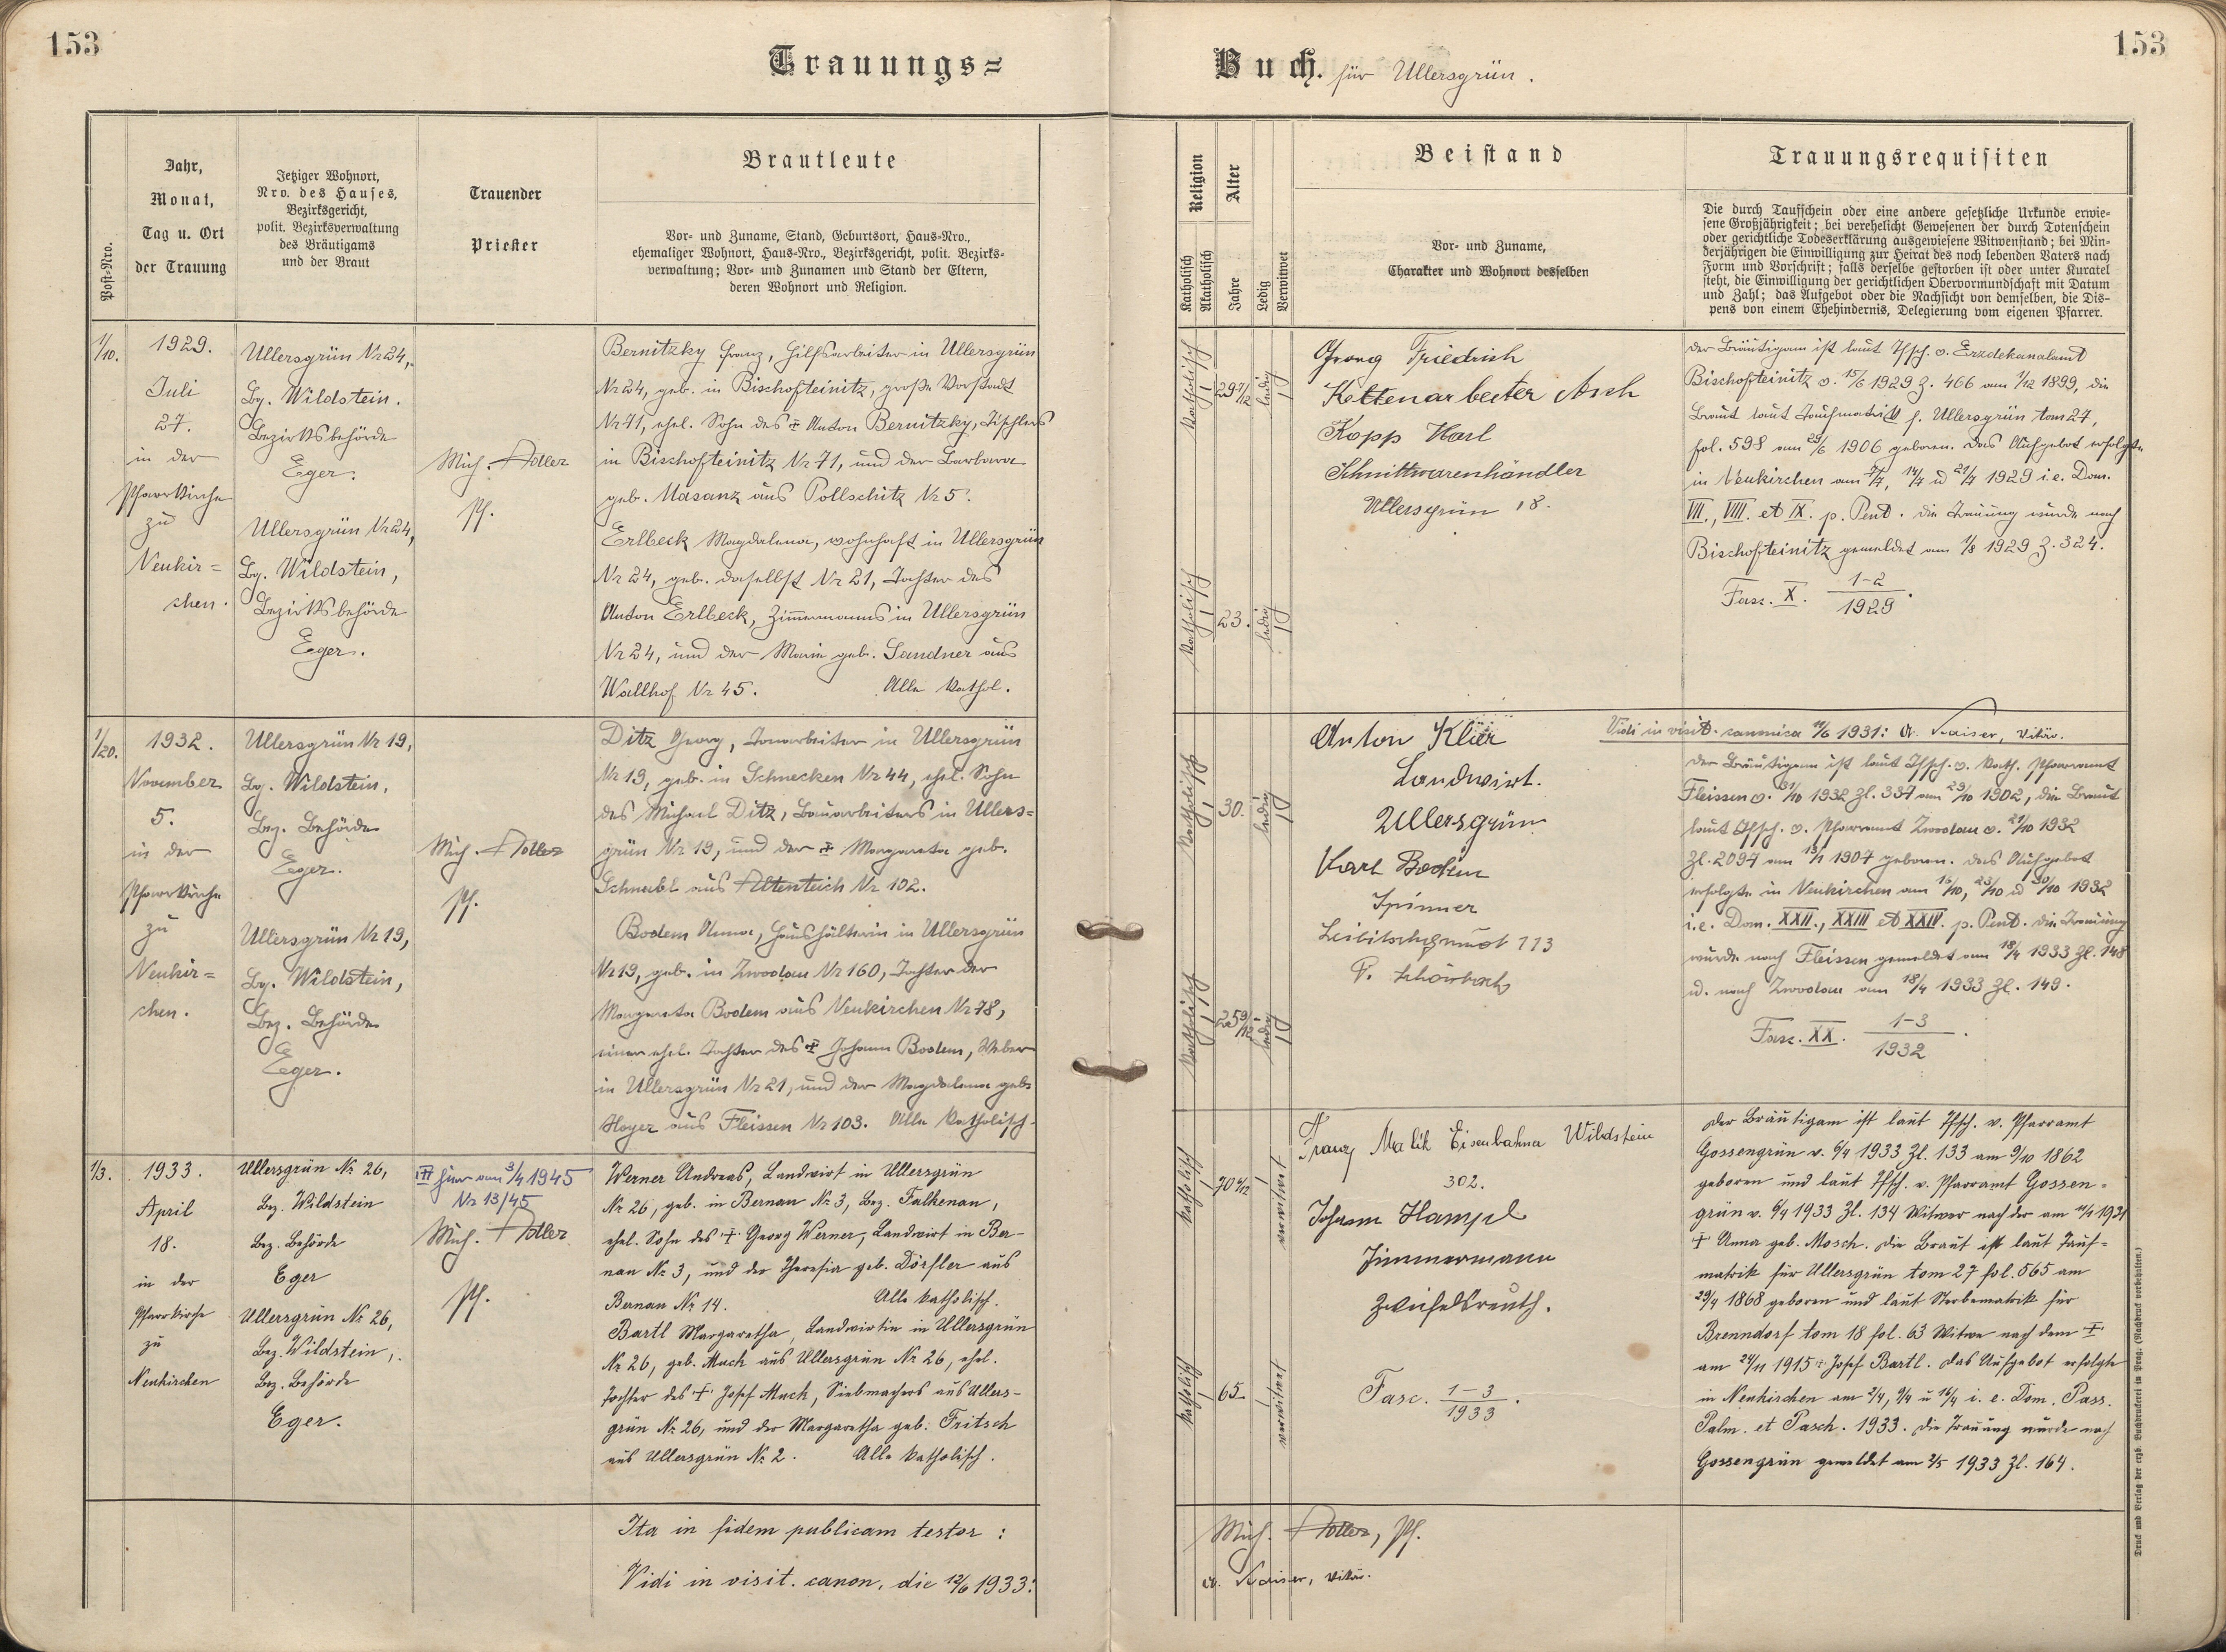 153
153
Trauungs=
Buch. für Ullersgrün.
Post-Nro.
Jahr,
Monat,
Tag u. Ort
der Trauung
Jetziger Wohnort,
Nro. des Hauses,
Bezirksgericht,
polit. Bezirksverwaltung
des Bräutigams
und der Braut
Trauender
Priester
Brautleute
Vor- und Zuname, Stand, Geburtsort, Haus-Nro.,
ehemaliger Wohnort, Haus-Nro., Bezirksgericht, polit. Bezirks-
verwaltung; Vor- und Zunamen und Stand der Eltern,
deren Wohnort und Religion.
Religion
Katholisch
Akatholisch
Alter
Jahre
Ledig
Verwitwet
Beistand
Vor- und Zuname,
Charakter und Wohnort desselben
Trauungsrequisiten
Die durch Taufschein oder eine andere gesetzliche Urkunde erwie-
sene Großjährigkeit; bei verehelicht Gewesenen der durch Totenschein
oder gerichtliche Todeserklärung ausgewiesene Witwenstand; bei Min-
derjährigen die Einwilligung zur Heirat des noch lebenden Vaters nach
Form und Vorschrift; falls derselbe gestorben ist oder unter Kuratel
steht, die Einwilligung der gerichtlichen Obervormundschaft mit Datum
und Zahl; das Aufgebot oder die Nachsicht von demselben, die Dis-
pens von einem Ehehindernis, Delegierung vom eigenen Pfarrer.
1/10.
1929.
Juli
27.
in der
Pfarrkirche
zu
Neukir=
chen.
Ullersgrün Nr 24,
Bg. Wildstein.
Bezirksbehörde
Eger.
Ullersgrün Nr 24,
Bg. Wildstein,
Bezirksbehörde
Eger.
Mich. Adler
Pf.
Bernitzky Franz, Hilfsarbeiter in Ullersgrün
Nr 24, geb. in Bischofteinitz, große Vorstadt
Nr 71, ehel. Sohn des ☩ Anton Bernitzky, Tischlers
in Bischofteinitz Nr 71, und der Barbara
geb. Masanz aus Pollschitz Nr 5.
Erlbeck Magdalena, wohnhaft in Ullersgrün
Nr 24, geb. daselbst Nr 21, Tochter des
Anton Erlbeck, Zimmermanns in Ullersgrün
Nr 24, und der Marie geb. Sandner aus
Wallhof Nr 45. Alle kathol.
katholisch
29 7/12
ledig
katholisch
23.
ledig
Georg Friedrich
Kettenarbeiter Asch
Kopp Karl
Schnittwarenhändler
Ullersgrün 18.
Der Bräutigam ist laut Tfsch. v. Erzdekanalamt
Bischofteinitz v. 15/6 1929 Z. 466 am 1/12 1899, die
Braut laut Taufmatrik f. Ullersgrün tom 27,
fol. 598 am 29/6 1906 geboren. Das Aufgebot erfolgte
in Neukirchen am 7/7, 14/7 u 21/7 1929 i.e. Dom.
VII., VIII. et IX. p. Pent. Die Trauung wurde nach
Bischofteinitz gemeldet am 1/8 1929 Z. 324.
Fasz. X. 1-2/1929.
1/20.
1932.
November
5.
in der
Pfarrkirche
zu
Neukir=
chen.
Ullersgrün Nr 19,
Bg. Wildstein,
Bez. Behörde
Eger.
Ullersgrün Nr 19,
Bg. Wildstein,
Bez. Behörde
Eger.
Mich. Adler
Pf.
Ditz Georg, Tonarbeiter in Ullersgrün
Nr 19, geb. in Schnecken Nr 44, ehel. Sohn
des Michael Ditz, Bauarbeiters in Ullers=
grün Nr 19, und der ☩ Margareta geb.
Schnabl aus Altenteich Nr 102.
Bodem Anna, Haushälterin in Ullersgrün
Nr 19, geb. in Zwodau Nr 160, Tochter der
Margareta Bodem aus Neukirchen Nr 78,
einer ehel. Tochter des ☩ Johann Bodem, Weber
in Ullersgrün Nr 21, und der Magdalena geb.
Hoyer aus Fleissen Nr 103. Alle katholisch.
katholisch
30.
ledig
katholisch
25 9/12
ledig
Anton Klier
Landwirt.
Ullersgrün
Karl Bodem
Spinner
113
Vidi in visit. canonica 11/6 1931: A. Kaiser, Vikär.
Der Bräutigam ist laut Tfsch. v. kath. Pfarramt
Fleissen v. 31/10 1932 Zl. 337 am 29/10 1902, die Braut
laut Tfsch. v. Pfarramt Zwodau v. 21/10 1932
Zl. 2097 am 13/1 1907 geboren. Das Aufgebot
erfolgte in Neukirchen am 16/10, 23/10 u 30/10 1932
i.e. Dom. XXII., XXIII et XXIV. p. Pent. Die Trauung
wurde nach Fleissen gemeldet am 18/4 1933 Zl. 148
u. nach Zwodau am 18/4 1933 Zl. 149.
Fasz. XX. 1-3/1932.
1/3.
1933.
April
18.
in der
Pfarrkirche
zu
Neukirchen
Ullersgrün Nr. 26,
Bez. Wildstein
Bez. Behörde
Eger
Ullersgrün Nr. 26,
Bez. Wildstein,
Bez. Behörde
Eger.
☩ hier am 3/4 1945
Nr 13/45
Mich. Adler
Pf.
Werner Andreas, Landwirt in Ullersgrün
Nr. 26, geb. in Bernau Nr. 3, Bez. Falkenau,
ehel. Sohn des ☩ Georg Werner, Landwirt in Ber-
nau Nr. 3, und der Theresia geb. Dörfler aus
Bernau Nr. 14. Alle katholisch.
Bartl Margaretha, Landwirtin in Ullersgrün
Nr. 26, geb. Muck aus Ullersgrün Nr. 26, ehel.
Tochter des ☩ Josef Muck, Siebmachers aus Ullers-
grün Nr. 26, und der Margaretha geb. Fritsch
aus Ullersgrün Nr. 2. Alle katholisch.
katholisch
70
verwitwet
katholisch
65
verwitwet
Franz Malik Eisenbahner Wildstein
302.
Johann Hampl
Zimmermann
Zweifelsreuth.
Fasc. 1-3/1933.
Der Bräutigam ist laut Tfsch. v. Pfarramt
Gossengrün v. 6/4 1933 Zl. 133 am 9/10 1862
geboren und laut Tfsch. v. Pfarramt Gossen=
grün v. 6/4 1933 Zl. 134 Witwer nach der am 1931
☩ Anna geb. Mosch. Die Braut ist laut Tauf=
matrik für Ullersgrün tom 27 fol. 565 am
29/4 1868 geboren und laut Sterbematrik für
Brenndorf tom 18 fol. 63 Witwe nach dem ☩
am 24/11 1915 ☩ Josef Bartl. Das Aufgebot erfolgte
in Neukirchen am 2/4, 9/4 u 16/4 i. e. Dom. Pass.
Palm. et Pasch. 1933. Die Trauung wurde nach
Gossengrün gemeldet am 2/5 1933 Zl. 164.
Ita in fidem publicam testor:
Mich. Adler, Pf.
Vidi in visit. canon. die 12/6 1933:
A. Kaiser, Vikär.
Druck und Verlag der erzb. Buchdruckerei in Prag. (Nachdruck vorbehalten.)